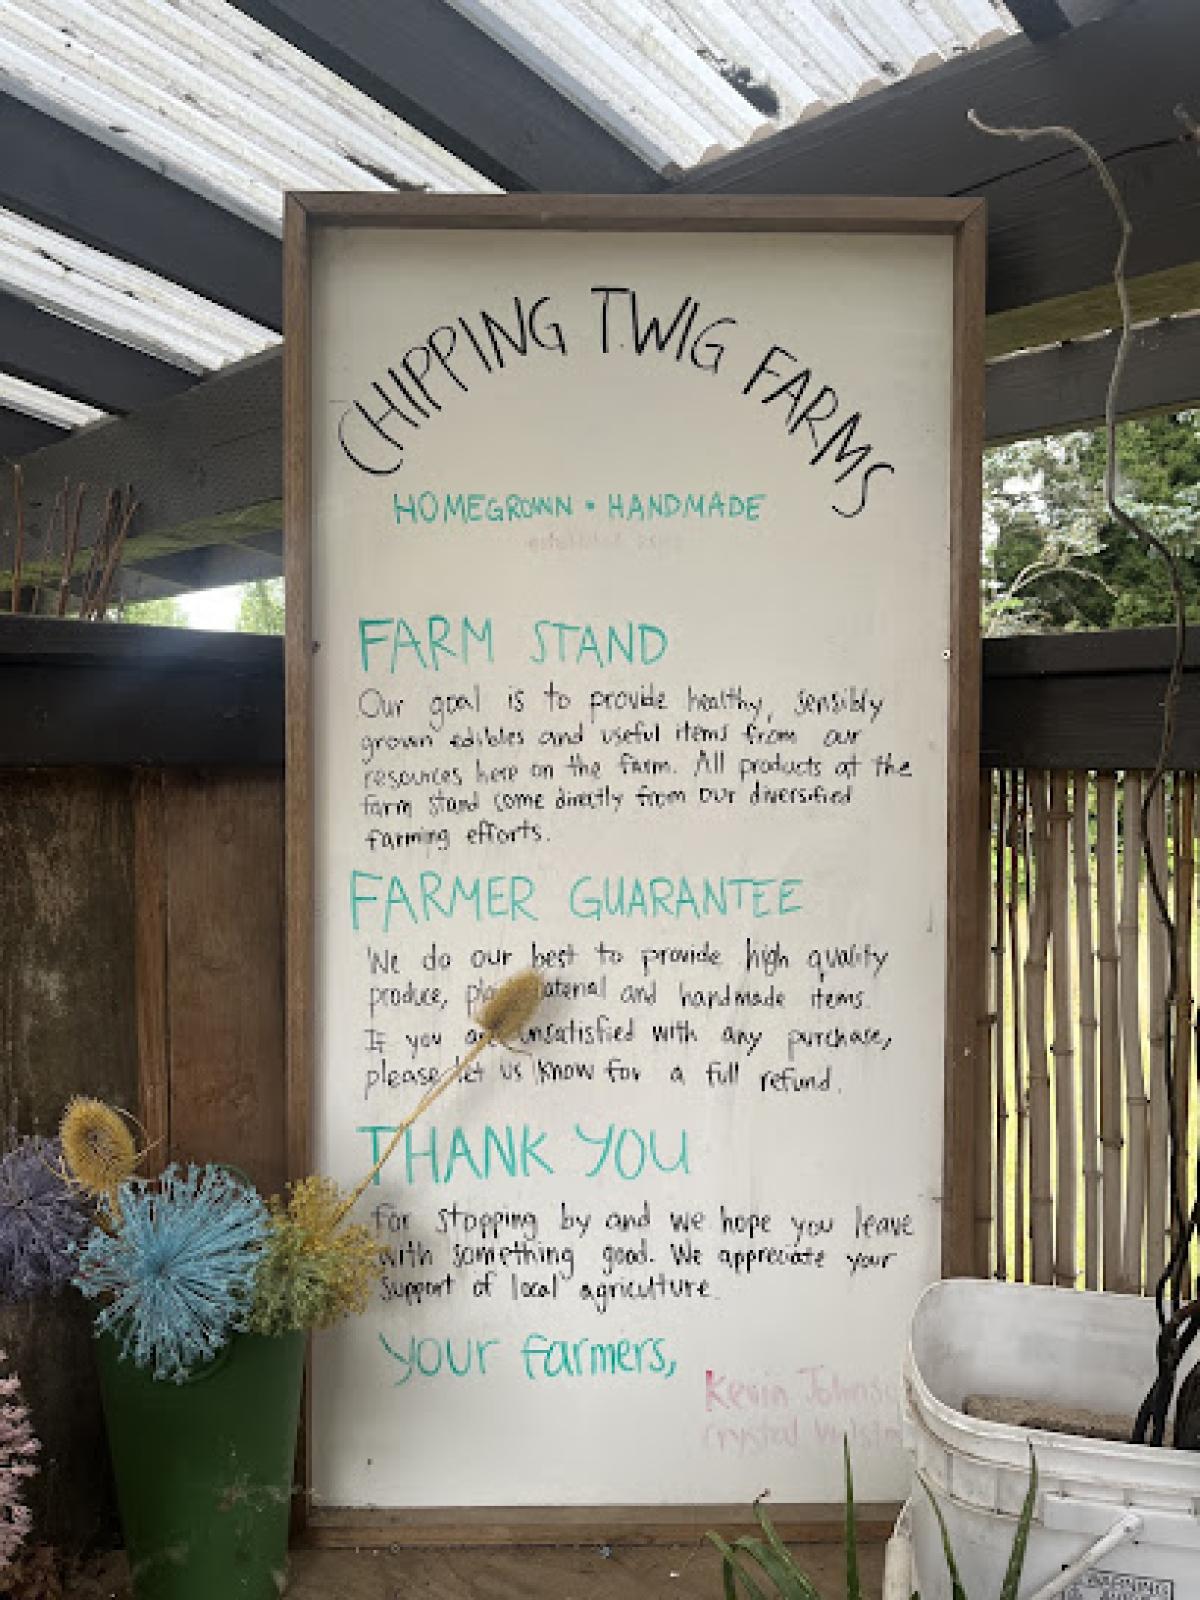 CHIPPING TWIG FARMS
HOMEGROWN • HANDMADE
FARM STAND
Our goal is to provide healthy, sensibly
grown edibles and useful items from our
resources here on the farm. All products at the
farm stand come directly from our diversified
farming efforts.
FARMER GUARANTEE
We do our best to provide high quality
produce, and handmade items.
If you are unsatisfied with any purchase,
please let us know for a full refund.
THANK YOU
for stopping by and we hope you leave
with something good. We appreciate your
support of local agriculture.
your farmers,
Kevin
Crystal
WARNING